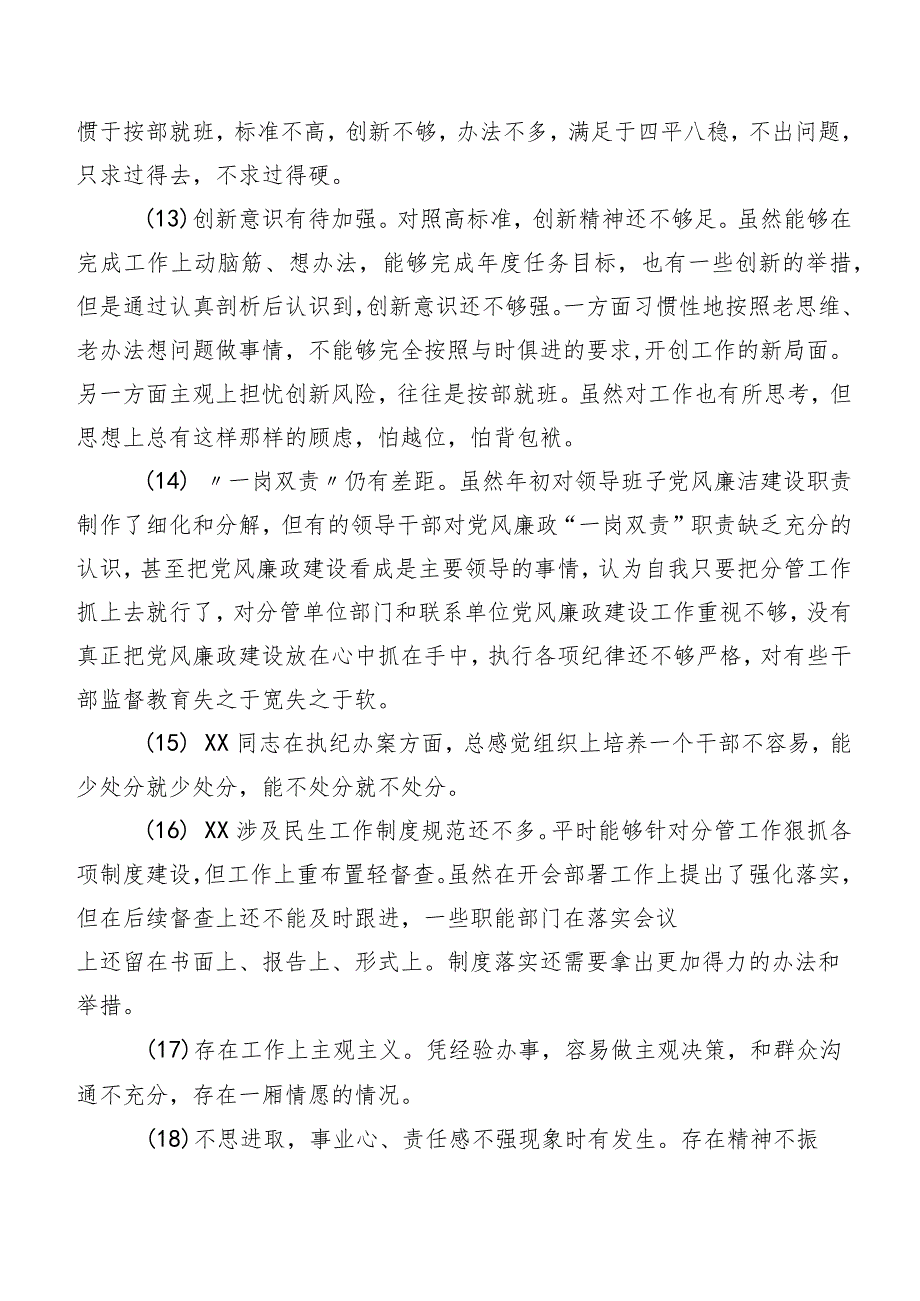 惯于按部就班，标准不高，创新不够，办法不多，满足于四平八稳，不出问题，
只求过得去，不求过得硬。
(13)创新意识有待加强。对照高标准，创新精神还不够足。虽然能够在
完成工作上动脑筋、想办法，能够完成年度任务目标，也有一些创新的举措，
但是通过认真剖析后认识到,创新意识还不够强。一方面习惯性地按照老思维、
老办法想问题做事情，不能够完全按照与时俱进的要求,开创工作的新局面。
另一方面主观上担忧创新风险，往往是按部就班。虽然对工作也有所思考，但
思想上总有这样那样的顾虑，怕越位，怕背包袱。
(14) 〃一岗双责〃仍有差距。虽然年初对领导班子党风廉洁建设职责
制作了细化和分解，但有的领导干部对党风廉政“一岗双责”职责缺乏充分的
认识，甚至把党风廉政建设看成是主要领导的事情，认为自我只要把分管工作
抓上去就行了，对分管单位部门和联系单位党风廉政建设工作重视不够，没有
真正把党风廉政建设放在心中抓在手中，执行各项纪律还不够严格，对有些干
部监督教育失之于宽失之于软。
(15) XX同志在执纪办案方面，总感觉组织上培养一个干部不容易，能
少处分就少处分，能不处分就不处分。
(16) XX涉及民生工作制度规范还不多。平时能够针对分管工作狠抓各
项制度建设,但工作上重布置轻督查。虽然在开会部署工作上提出了强化落实，
但在后续督查上还不能及时跟进，一些职能部门在落实会议
上还留在书面上、报告上、形式上。制度落实还需要拿出更加得力的办法和
举措。
(17)存在工作上主观主义。凭经验办事，容易做主观决策，和群众沟
通不充分，存在一厢情愿的情况。
(18)不思进取，事业心、责任感不强现象时有发生。存在精神不振